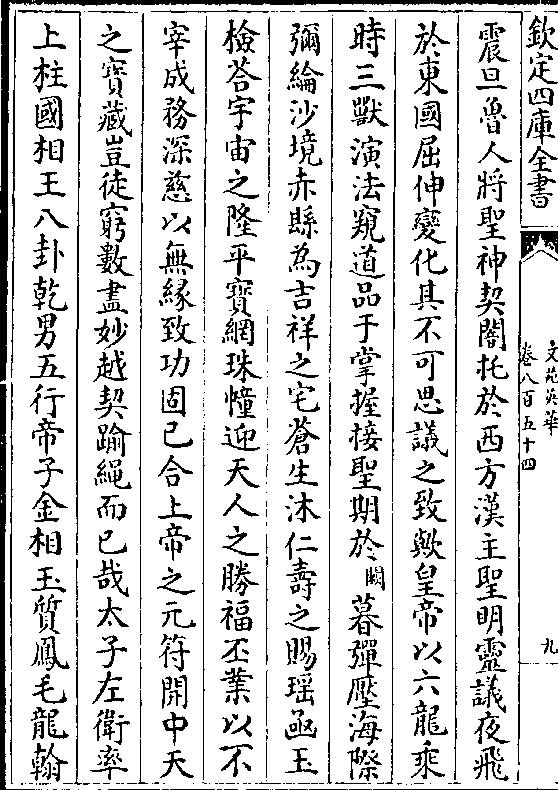 欽定四庫全書
文苑英華
卷八百五十四
九
震旦魯人將聖神契闇托於西方漢主聖明靈議夜飛
於東國屈伸變化其不可思議之致歟皇帝以六龍乘
時三獸演法窺道品于掌握接聖期於闕暮彈壓海際
彌綸沙境赤縣為吉祥之宅蒼生沐仁壽之賜瑶亟玉
檢荅宇宙之隆平寳網珠幢迎天人之勝福丕業以不
宰成務深慈以無縁致功固已合上帝之元符開中天
之寳藏豈徒窮數盡妙越契踰繩而已哉太子左衛率
上柱國相王八卦乾男五行帝子金相玉質鳳毛龍翰